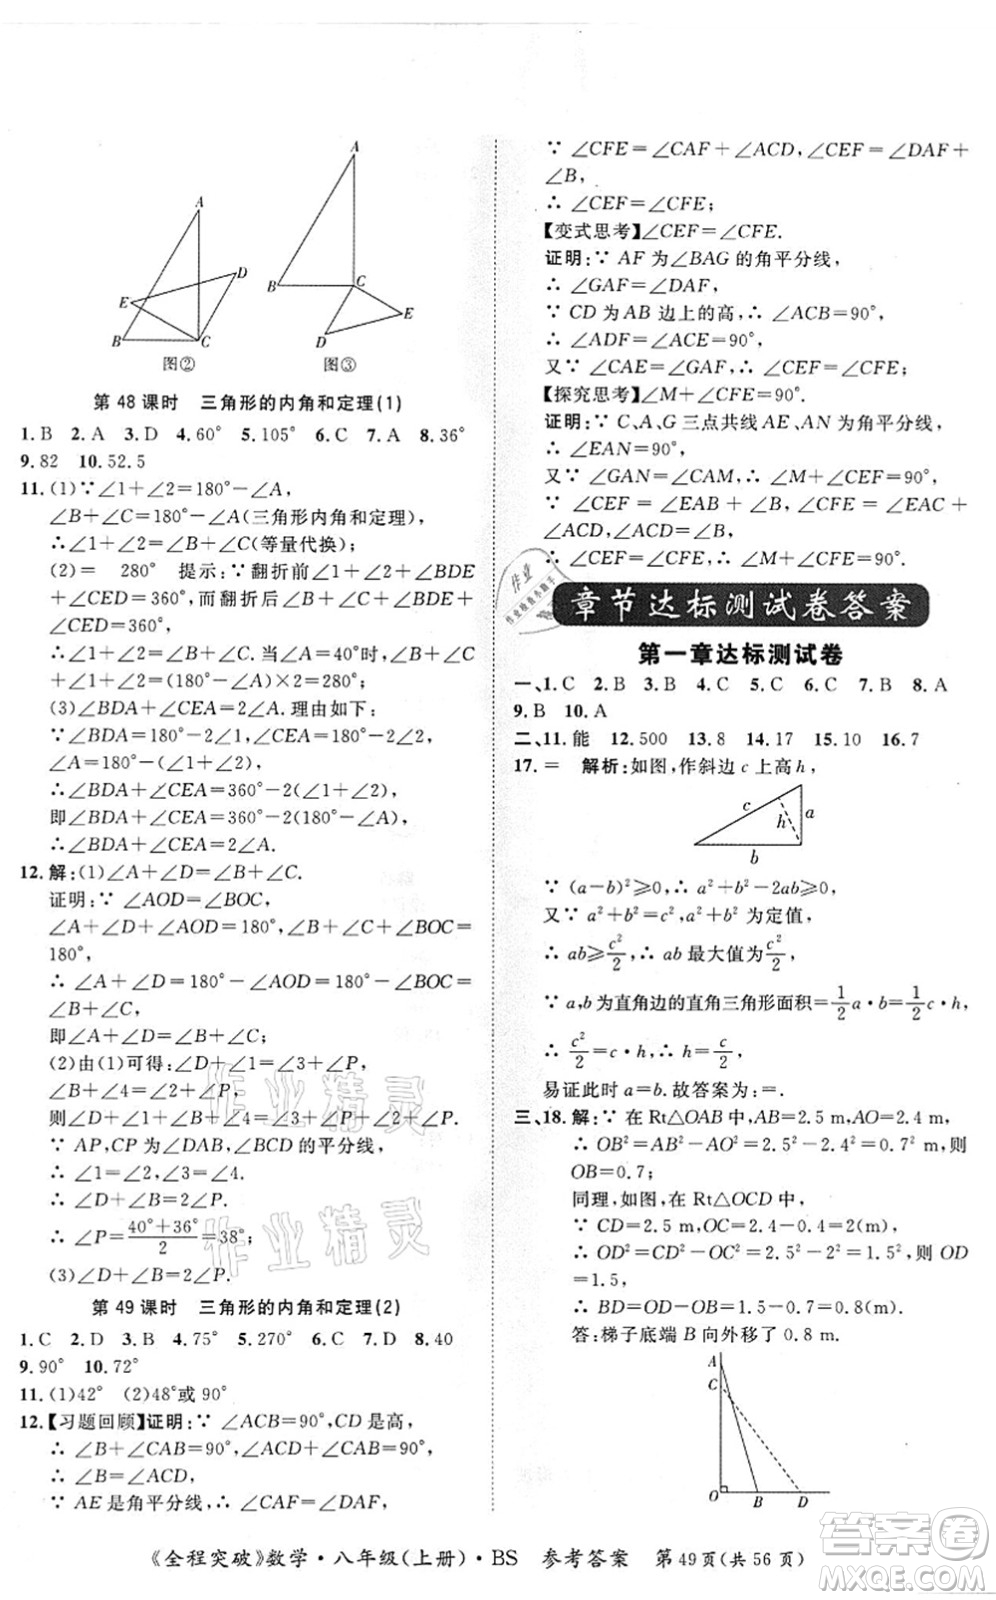 A
B
C
D
E
图②
A
B
C
D
E
图③
第 48 课时　三角形的内角和定理(1)
1. B　2. A　3. D　4. 60°　5. 105°　6. C　7. A　8. 36°
9. 82　10. 52.5
11. (1)∵∠1＋∠2＝180°－∠A，
∠B＋∠C＝180°－∠A(三角形内角和定理)，
∴∠1＋∠2＝∠B＋∠C(等量代换)；
(2)＝　280°　提示：∵翻折前∠1＋∠2＋∠BDE
＋∠CED＝360°，而翻折后∠1＋∠2＋∠BDE
＋∠CED＝360°.∴当∠A＝40°时，∠BDA＋
∠CEA＝(180°－∠A)×2＝280°；
(3)∠BDA＋∠CEA＝2∠A. 理由如下：
∵∠BDA＝180°－2∠1，∠CEA＝180°－2∠2，
∴∠BDA＋∠CEA＝360°－2(∠1＋∠2)，
即∠BDA＋∠CEA＝360°－2(180°－∠A)，
∴∠BDA＋∠CEA＝2∠A.
12. 解：(1)∠A＋∠D＝∠B＋∠C.
证明：∵ ∠AOD＝∠BOC，
∠A＋∠D＋∠AOD＝∠B＋∠C＋∠BOC＝
180°，
∴ ∠A＋∠D＝180°－∠AOD＝180°－∠BOC
＝∠B＋∠C，
即∠A＋∠D＝∠B＋∠C.
(2)由(1)可得：∠2＋∠D＝∠1＋∠P，
∠B＋∠4＝∠2＋∠P，
则∠D＋∠2＋∠B＋∠4＝∠1＋∠2＋2∠P.
∵ AP,CP 为∠DAB,∠BCD 的平分线，
∴ ∠1＝∠2，∠3＝∠4.
∴ ∠D＋∠B＝2∠P.
∴ ∠P＝(40°＋36°)/2＝38°；
(3)∠D＋∠B＝2∠P.
第 49 课时　三角形的内角和定理(2)
1. C　2. D　3. B　4. 75°　5. 270°　6. C　7. D　8. 40
9. 90°　10. 72°
11. (1)42°　(2)48°或 90°
12.【习题回顾】证明：∵ ∠ACB＝90°，CD 是高，
∴ ∠B＋∠CAB＝90°，∠ACD＋∠CAB＝90°，
∴ ∠B＝∠ACD，
∵ AE 是角平分线，∴ ∠CAF＝∠DAF，
∵ ∠CFE＝∠CAF＋∠ACD，∠CEF＝∠DAF＋
∠B，
∴ ∠CEF＝∠CFE；
【变式思考】∠CEF＝∠CFE.
证明：∵ AF 为∠BAG 的角平分线，
∴ ∠GAF＝∠DAF，
∵ CD 为 AB 边上的高，∴ ∠ACB＝90°，
∴ ∠ADF＝∠ACE＝90°，
又∵ ∠CAE＝∠GAF，∴ ∠CEF＝∠CFE；
【探究思考】∠M＋∠CFE＝90°.
证明：∵ C、A、G 三点共线 AE、AN 为角平分线，
∴ ∠EAN＝90°，
又∵ ∠GAN＝∠CAM，∴ ∠M＋∠CEF＝90°，
∵ ∠CEF ＝∠EAB ＋∠B，∠CFE ＝∠EAC ＋
∠ACD，∠ACD＝∠B，
∴ ∠CEF＝∠CFE，∴ ∠M＋∠CFE＝90°.
章节达标测试卷答案
第一章达标测试卷
一、1. C　2. B　3. B　4. C　5. C　6. C　7. B　8. A
9. B　10. A
二、11. 能　12. 500　13. 8　14. 17　15. 10　16. 7
17. ＝　解析：如图，作斜边 c 上高 h，
c
h
a
b
∵ (a－b)²≥0，∴ a²＋b²－2ab≥0，
又∵ a²＋b²＝c² 为定值，
∴ ab≥c²/2，∴ ab 最大值为c²/2，
∵ a,b 为直角边的直角三角形面积＝1/2a·b＝1/2c·h，
∴ c²/2＝c·h，∴ h＝c/2，
易证此时 a＝b. 故答案为：＝.
三、18. 解：∵ 在 Rt△OAB 中，AB＝2.5 m，AO＝2.4 m，
∴ OB²＝AB²－AO²＝2.5²－2.4²＝0.7² m，则
OB＝0.7；
同理，如图，在 Rt△OCD 中，
∵ CD＝2.5 m，OC＝2.4－0.4＝2(m)，
∴ OD²＝CD²－OC²＝2.5²－2²＝1.5²，则 OD
＝1.5，
∴ BD＝OD－OB＝1.5－0.7＝0.8(m).
答：梯子底端 B 向外移了 0.8 m.
A
C
O
B
D
《全程突破》数学·八年级(上册)·BS　参考答案　第 49 页(共 56 页)
作业精灵
作业精灵
作业
答案圈
MXQE.COM